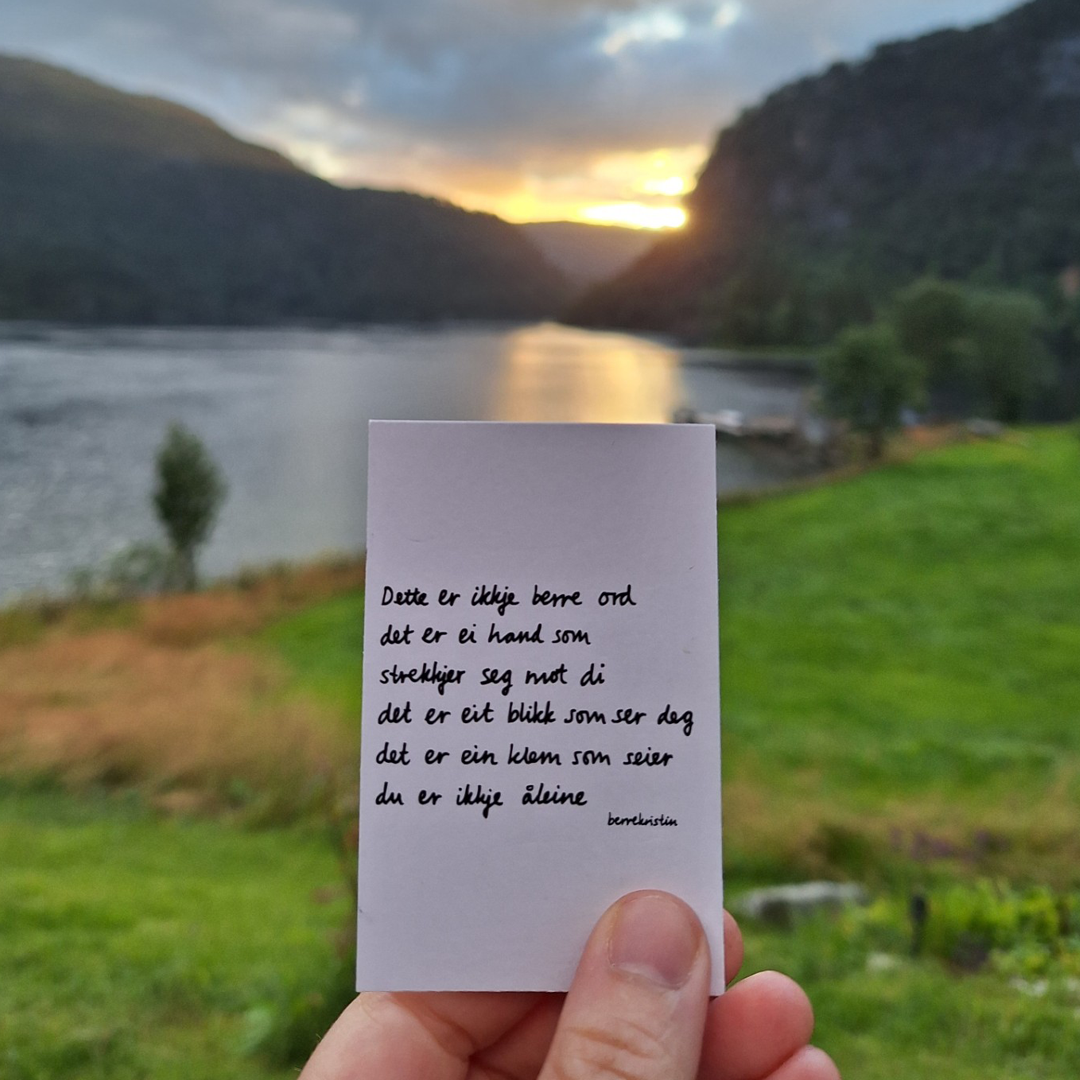 Dette er ikkje berre ord
det er ei hand som
strekkjer seg mot di
det er eit blikk som ser deg
det er ein klem som seier
du er ikkje åleine
berrekristin